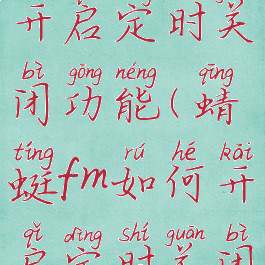 开启定时关
bì gōng néng qīng
闭功能(蜻
tíng rú hé kāi
蜓fm如何开
qǐ dìng shí guān bì
启定时关闭